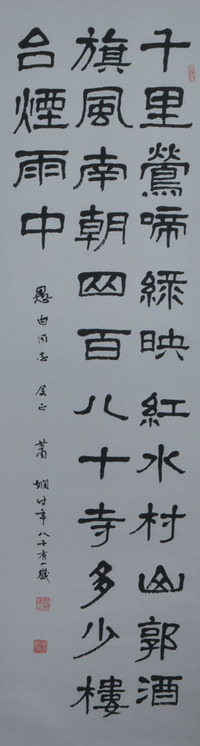 千里鶯啼綠映紅水村山郭酒
旗風南朝四百八十寺多少樓
台煙雨中
愚由同志 居正 蕭嫻 时年八十有一歲